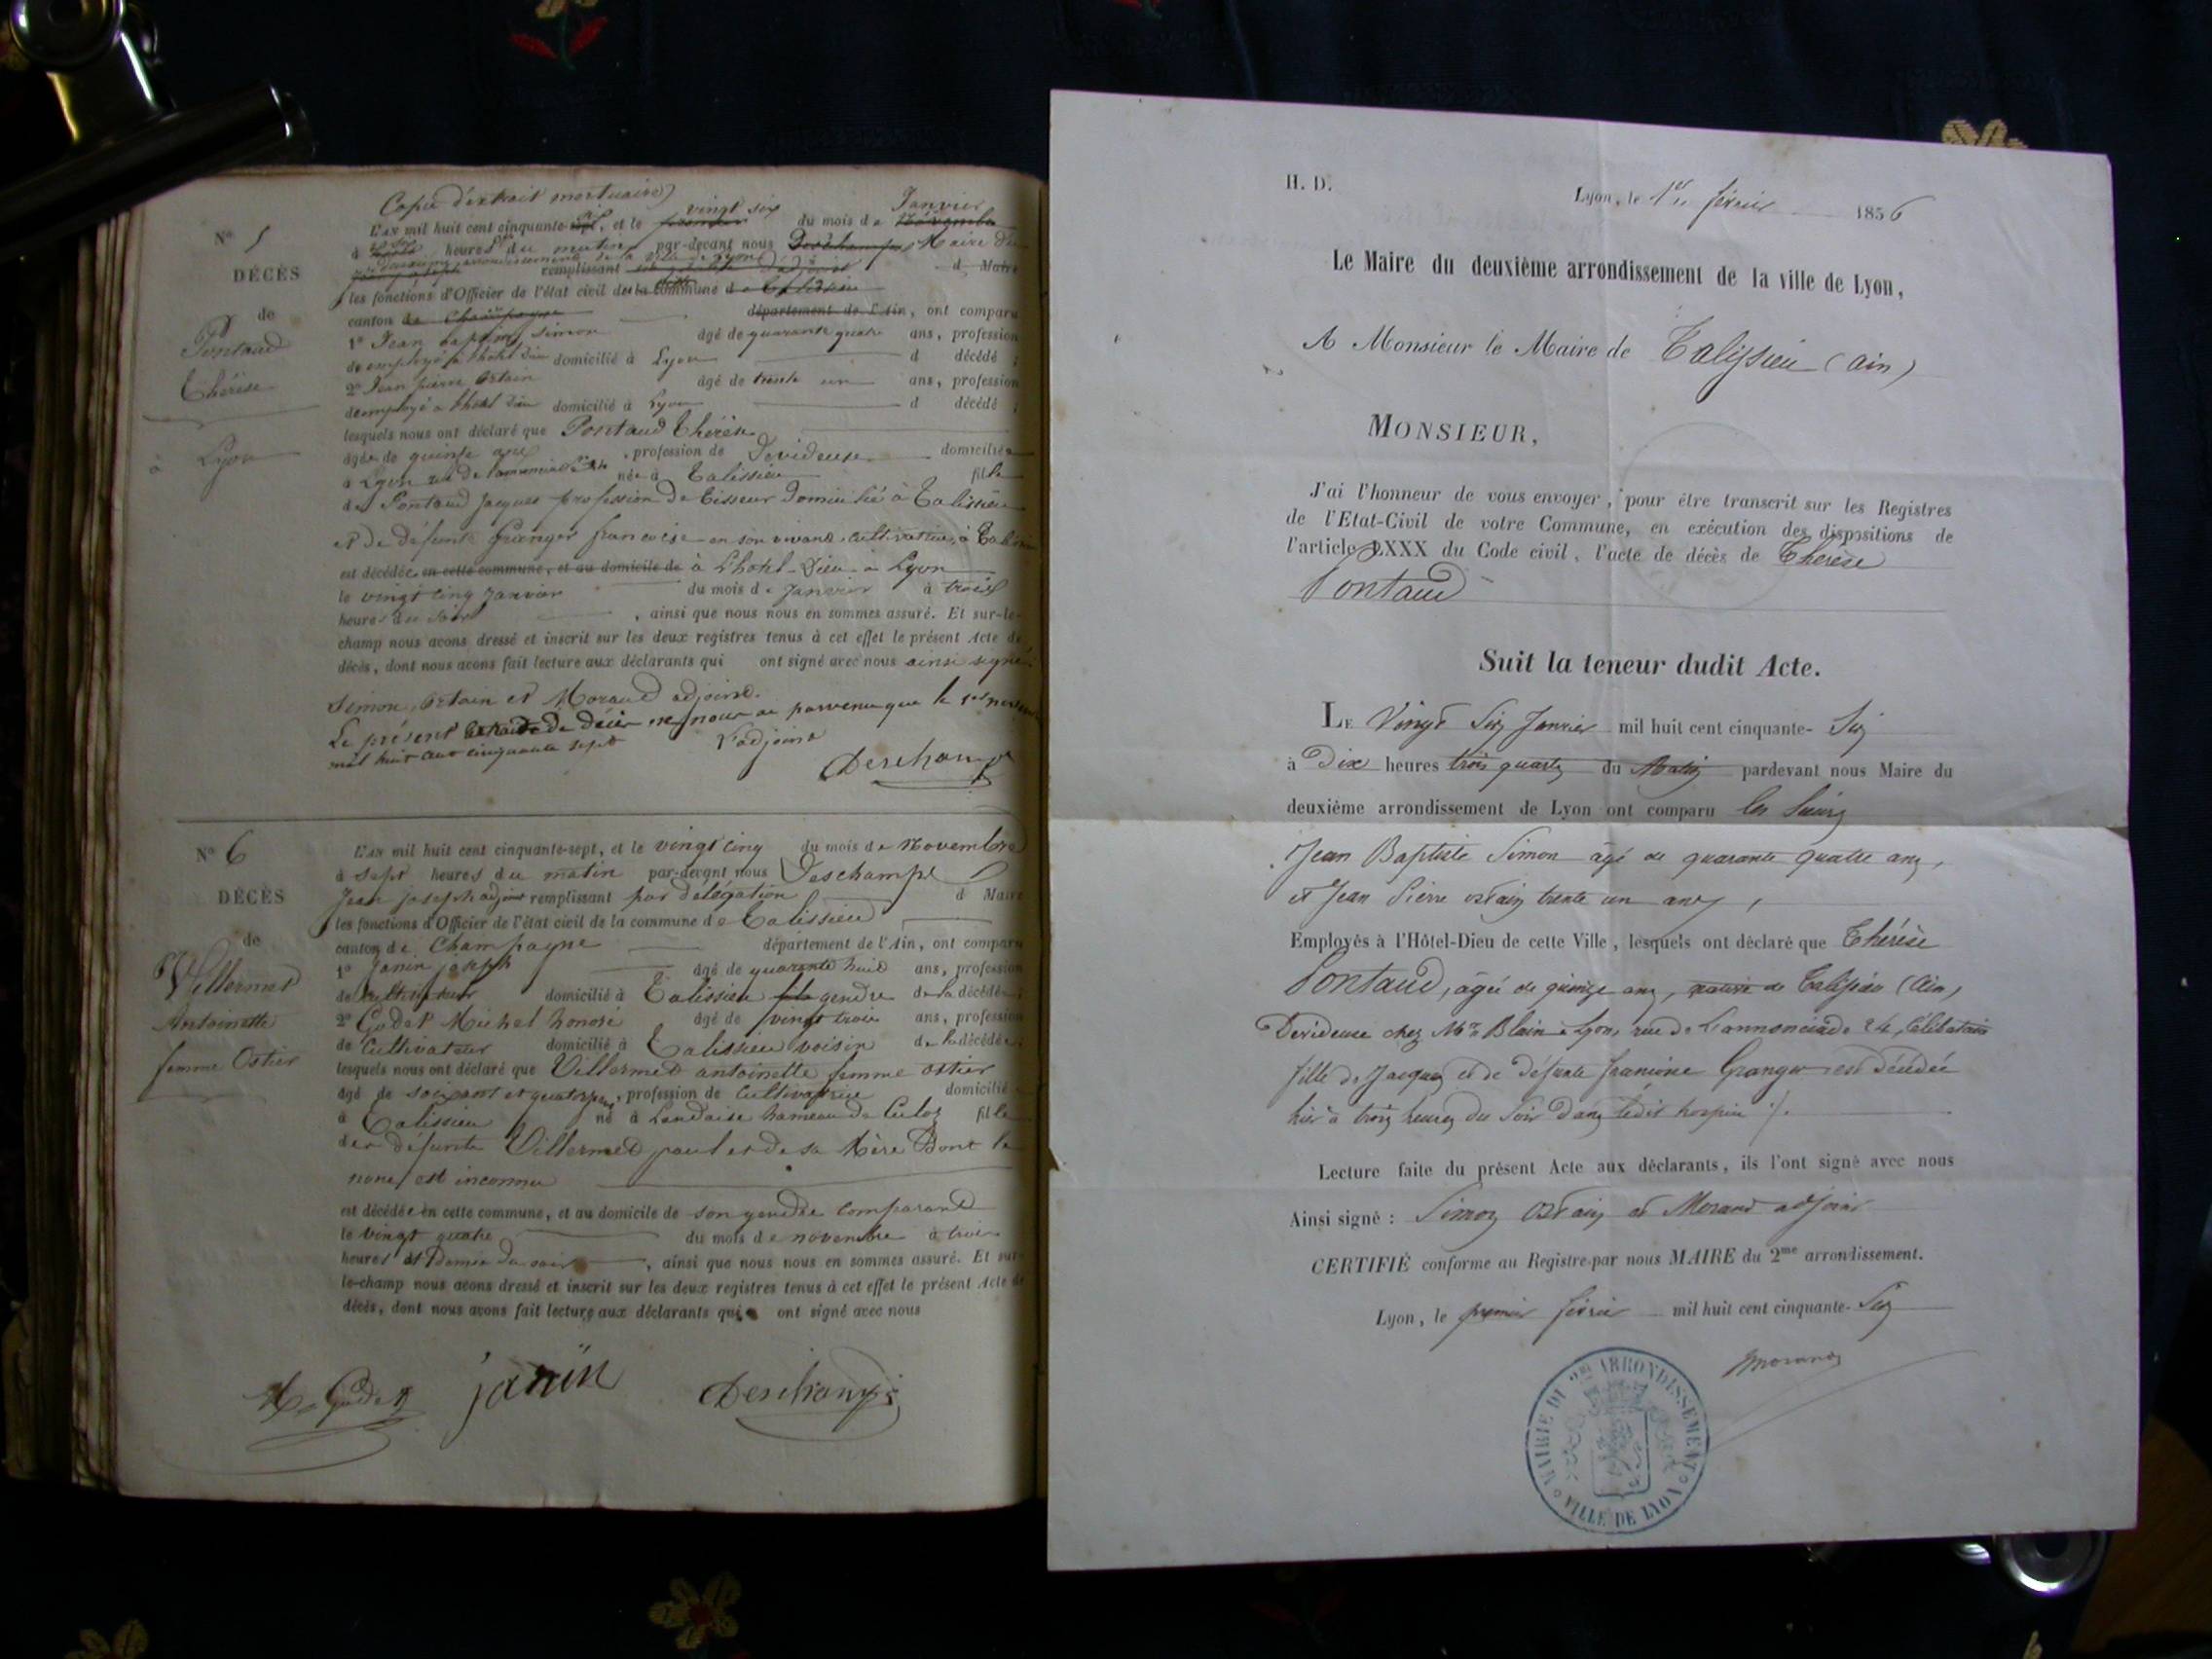 Copie d'extrait mortuaire
N° 5
DÉCÈS
de
Pontaud
Thérèse
à Lyon
vingt six Janvier
L'AN mil huit cent cinquante-sept, et le premier du mois de Novembre
heures du matin par-devant nous Deschamps Maire du
deuxième arrondissement de la ville de Lyon
remplissant d'adjoint d Maire
les fonctions d'Officier de l'état civil de la commune de Talissieu
canton de Champagne département de l'Ain, ont comparu
1° Jean baptiste Simon âgé de quarante quatre ans, profession
de employé à l'hôtel Dieu domicilié à Lyon d décédé ;
2° Jean pierre Ostain âgé de trente un ans, profession
de employé a l'hôtel Dieu domicilié à Lyon d décédé ;
lesquels nous ont déclaré que Pontaud Thérèse
âgée de quinze ans, profession de Devideuse domiciliée
à Lyon rue de née à Talissieu fille
de Pontaud Jacques profession de Tisseur domicilié à Talissieu
et de défunte Granger francoise en son vivant cultivatrice à Talissieu
est décédée en cette commune, et au domicile de à L'hotel-Dieu à Lyon
le vingt cinq Janvier du mois de Janvier à trois
heures du soir, ainsi que nous nous en sommes assuré. Et sur-le-
champ nous avons dressé et inscrit sur les deux registres tenus à cet effet le présent Acte de
décès, dont nous avons fait lecture aux déclarants qui ont signé avec nous ainsi signé
Simon, Ostain et Morand adjoint.
Le présent de décès ne nous est parvenu que le 1er
mil huit cent cinquante sept L'adjoint
Deschamps
N° 6
DÉCÈS
de
Villermet
Antoinette
femme Ostier
L'AN mil huit cent cinquante-sept, et le vingt cinq du mois de Novembre
à sept heures du matin par-devant nous Deschamps
Jean joseph adjoint remplissant par délégation d Maire
les fonctions d'Officier de l'état civil de la commune de Talissieu
canton de Champagne département de l'Ain, ont comparu
1° Janin joseph âgé de quarante huit ans, profession
de cultivateur domicilié à Talissieu gendre de la décédée ;
2° Godet Michel honoré âgé de vingt trois ans, profession
de Cultivateur domicilié à Talissieu voisin de la décédée ;
lesquels nous ont déclaré que Villermet antoinette femme ostier
âgé de soixante et quatorze ans, profession de Cultivatrice domiciliée
à Talissieu né à Landaise hameau de Culoz fille
des défunts Villermet paul et de sa Mère Dont le
nom est inconnu
est décédée en cette commune, et au domicile de son gendre comparant
le vingt quatre du mois de novembre à trois
heures et Demie du soir, ainsi que nous nous en sommes assuré. Et sur-
le-champ nous avons dressé et inscrit sur les deux registres tenus à cet effet le présent Acte de
décès, dont nous avons fait lecture aux déclarants qui ont signé avec nous
M. Godet janin Deschamps
H. D.
Lyon, le 1er février 1856
Le Maire du deuxième arrondissement de la ville de Lyon,
A Monsieur le Maire de Talissieu (ain)
MONSIEUR,
J'ai l'honneur de vous envoyer, pour être transcrit sur les Registres
de l'Etat-Civil de votre Commune, en exécution des dispositions de
l'article LXXX du Code civil, l'acte de décès de Thérèse
Pontaud
Suit la teneur dudit Acte.
LE Vingt Six Janvier mil huit cent cinquante-Six
à Dix heures trois quarts du Matin pardevant nous Maire du
deuxième arrondissement de Lyon ont comparu les Sieurs
Jean Baptiste Simon âgé de quarante quatre ans,
et Jean Pierre Ostain trente un ans,
Employés à l'Hôtel-Dieu de cette Ville, lesquels ont déclaré que Thérèse
Pontaud, âgée de quinze ans, native de Talissieu (Ain)
Devideuse chez Mr Blain à Lyon, rue de Lannonciade 24, Célibataire
fille de Jacques et de Défunte Francoise Granger est Décédée
hier à trois heures du Soir Dans ledit hospice ./.
Lecture faite du présent Acte aux déclarants, ils l'ont signé avec nous
Ainsi signé : Simon Ostain et Morand adjoint
CERTIFIÉ conforme au Registre par nous MAIRE du 2me arrondissement.
Lyon, le premier février mil huit cent cinquante-Six
Morand
MAIRIE DU 2me ARRONDISSEMENT
VILLE DE LYON